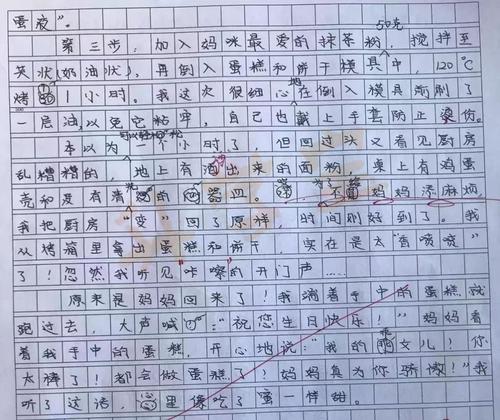 蛋液”。
50克
第三步,加入妈咪最爱的抹茶粉,搅拌至
羹状(奶油状),再倒入蛋糕和饼干模具中,120℃
烤 1小时。我这次很细心地在倒入模具前刷了
一层油,以免它粘牢,自己也戴上手套防止烫伤。
本以为一个小时了,但回过头又看见厨房
乱糟糟的,地上有洒出来的面粉,桌上有鸡蛋
壳和没有清洗的 器皿。 为了不 妈妈添麻烦,
我把厨房“变”回了原样,时间刚好到了。我
从烤箱里拿出蛋糕和饼干 实在是太“香喷喷”
了!忽然我听见“咔嚓”的开门声……
原来是妈妈回来了!我端着手中的蛋糕就
跑过去,大声喊 :“祝您生日快乐!”妈妈看
着我手中的蛋糕,开心地说:“我的乖女儿!你
太棒了!都会做蛋糕了!妈妈真为你骄傲!”我
听了这话,心里像吃了蜜一样甜。